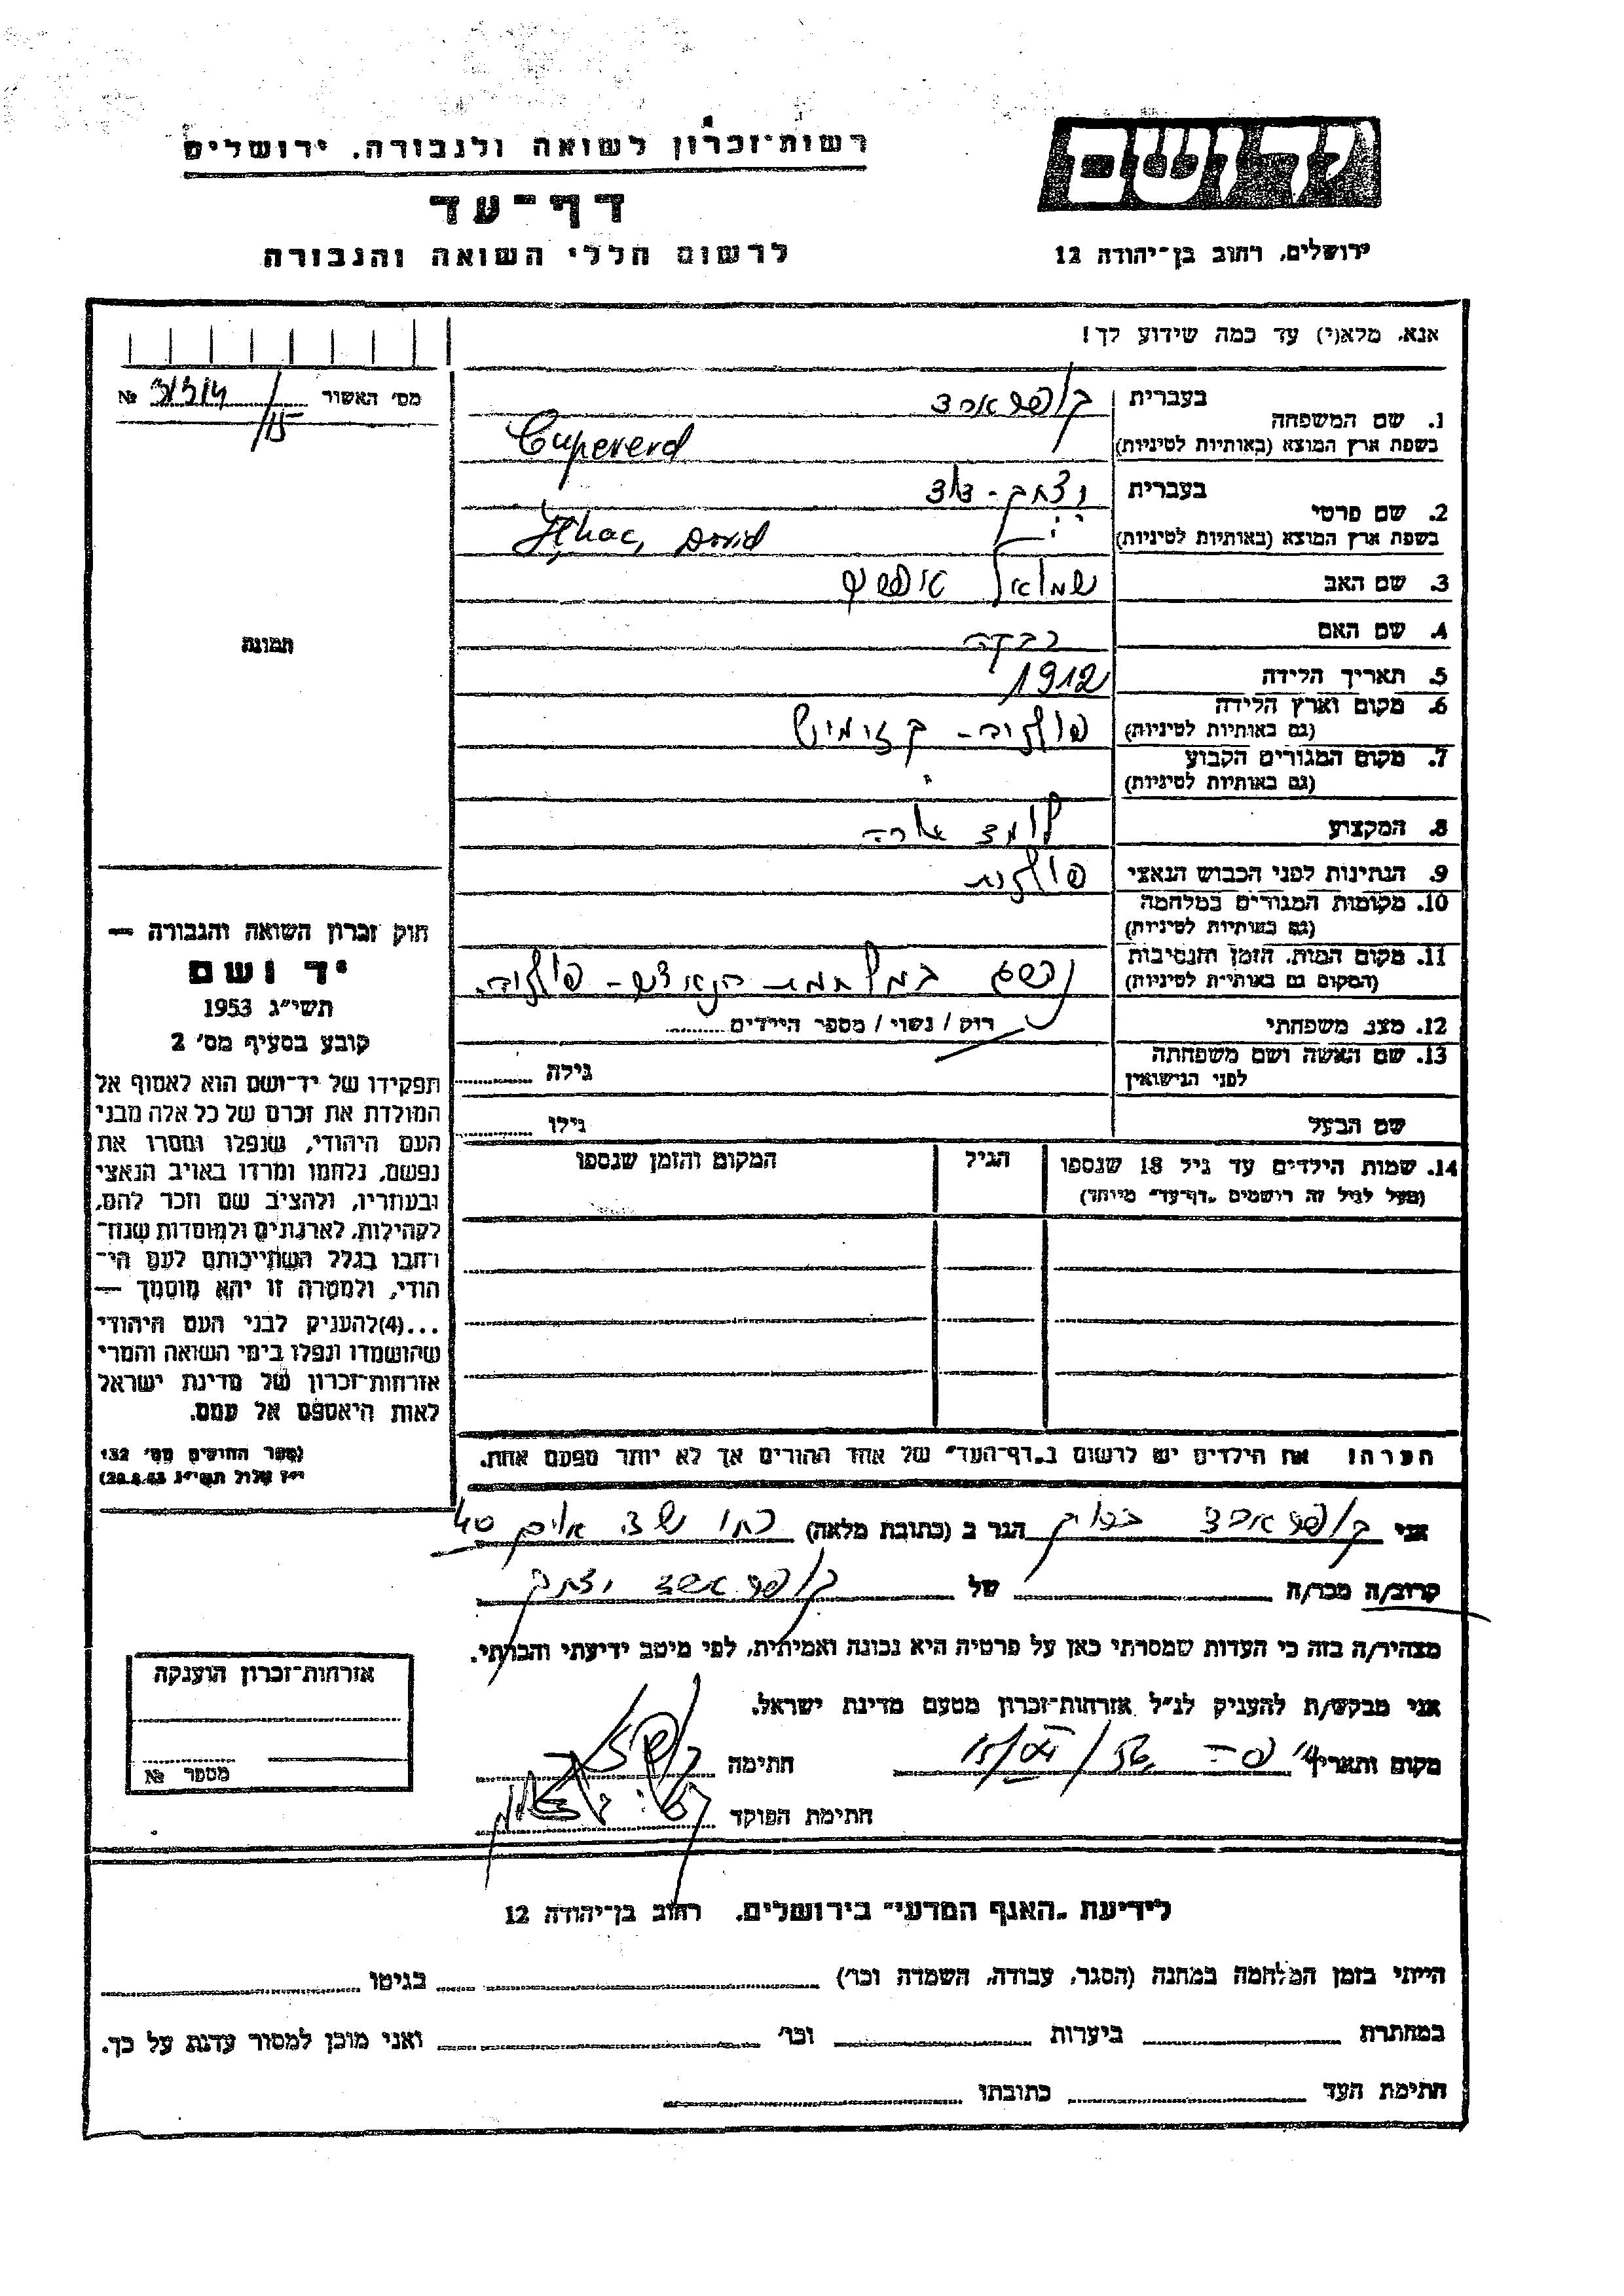 רשות־זכרון לשואה ולגבורה, ירושלים
דף־עד
לרשום חללי השואה והגבורה
יד ושם
ירושלים, רחוב בן־יהודה 12
אנא, מלא(י) עד כמה שידוע לך!
מס׳ האשור №
1. שם המשפחה בעברית קופפארד
בשפת ארץ המוצא (באותיות לטיניות) Cupererd
2. שם פרטי בעברית יצחק - דוד
בשפת ארץ המוצא (באותיות לטיניות) Ithac, David
3. שם האב שמואל יוסף
4. שם האם רבקה
5. תאריך הלידה 1912
6. מקום וארץ הלידה (גם באותיות לטיניות) פולניה - קזימיש
7. מקום המגורים הקבוע (גם באותיות לטיניות)
8. המקצוע לומד תורה
9. הנתינות לפני הכבוש הנאצי פולנית
10. מקומות המגורים במלחמה (גם באותיות לטיניות)
11. מקום המות, הזמן והנסיבות (המקום גם באותיות לטיניות) נספה במלחמת הנאצים - פולניה.
12. מצב משפחתי רוק / נשוי / מספר הילדים
13. שם האשה ושם משפחתה לפני הנישואין גילה
שם הבעל גילו
14. שמות הילדים עד גיל 18 שנספו הגיל המקום והזמן שנספו
(מעל לגיל זה רושמים „דף־עד״ מיוחד)
הערה! את הילדים יש לרשום ב„דף־העד״ של אחד ההורים אך לא יותר מפעם אחת.
תמונה
חוק זכרון השואה והגבורה —
יד ושם
תשי״ג 1953
קובע בסעיף מס׳ 2
תפקידו של יד־ושם הוא לאסוף אל
המולדת את זכרם של כל אלה מבני
העם היהודי, שנפלו ומסרו את
נפשם, נלחמו ומרדו באויב הנאצי
ובעוזריו, ולהציב שם וזכר להם,
לקהילות, לארגונים ולמוסדות שנח־
רבו בגלל השתייכותם לעם הי־
הודי, ולמטרה זו יהא מוסמך —
...(4)להעניק לבני העם היהודי
שהושמדו ונפלו בימי השואה והמרי
אזרחות־זכרון של מדינת ישראל
לאות היאספם אל עמם.
(ספר החוקים מס׳ 132
י״ז אלול תשי״ג 28.8.53)
אני קופפארד הגר ב (כתובת מלאה)
קרוב/ה מכר/ה של קופפארד יצחק
מצהיר/ה בזה כי העדות שמסרתי כאן על פרטיה היא נכונה ואמיתית, לפי מיטב ידיעתי והכרתי.
אני מבקש/ת להעניק לנ״ל אזרחות־זכרון מטעם מדינת ישראל.
מקום ותאריך חתימה
חתימת הפוקד
אזרחות־זכרון הוענקה
מספר №
לידיעת „האגף המדעי״ בירושלים, רחוב בן־יהודה 12
הייתי בזמן המלחמה במחנה (הסגר, עבודה, השמדה וכר׳) בגיטו
במחתרת ביערות וכר׳ ואני מוכן למסור עדות על כך.
חתימת העד כתובתו